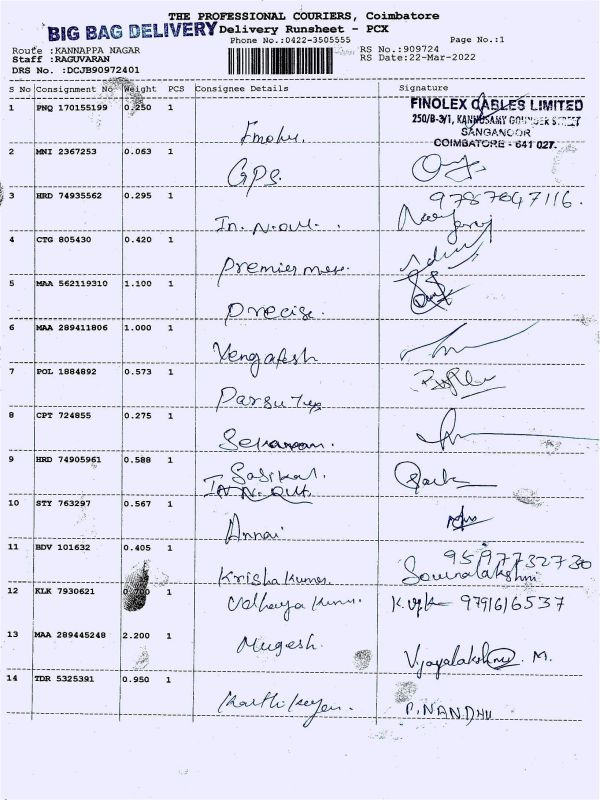 THE PROFESSIONAL COURIERS, Coimbatore
BIG BAG DELIVERY Delivery Runsheet - PCX
Phone No.:0422-3505555 Page No.:1
Route :KANNAPPA NAGAR RS No.:909724
Staff :RAGUVARAN RS Date:22-Mar-2022
DRS No. :DCJB90972401
S No Consignment No Weight PCS Consignee Details Signature
FINOLEX CABLES LIMITED
1 PNQ 170155199 0.250 1
250/B-3/1, KANNUSAMY GOUNDER STREET
SANGANOOR
COIMBATORE - 641 027.
2 MNI 2367253 0.063 1
GPS.
3 HRD 74935562 0.295 1 9787047116.
In. N. out.
4 CTG 805430 0.420 1
Premier
5 MAA 562119310 1.100 1
Precise.
6 MAA 289411806 1.000 1
Vengatesh
7 POL 1884892 0.573 1
8 CPT 724855 0.275 1
9 HRD 74905961 0.588 1
Sasikal.
In. N. out.
10 STY 763297 0.567 1
Annai
11 BDV 101632 0.405 1 9597732730
Krishakumar Sownalakshmi
12 KLK 7930621 0.700 1
Udhayakumar 9791616537
13 MAA 289445248 2.200 1
Mugesh. Vijayalakshmi. M.
14 TDR 5325391 0.950 1
Karthikeyan. P. NANDHU